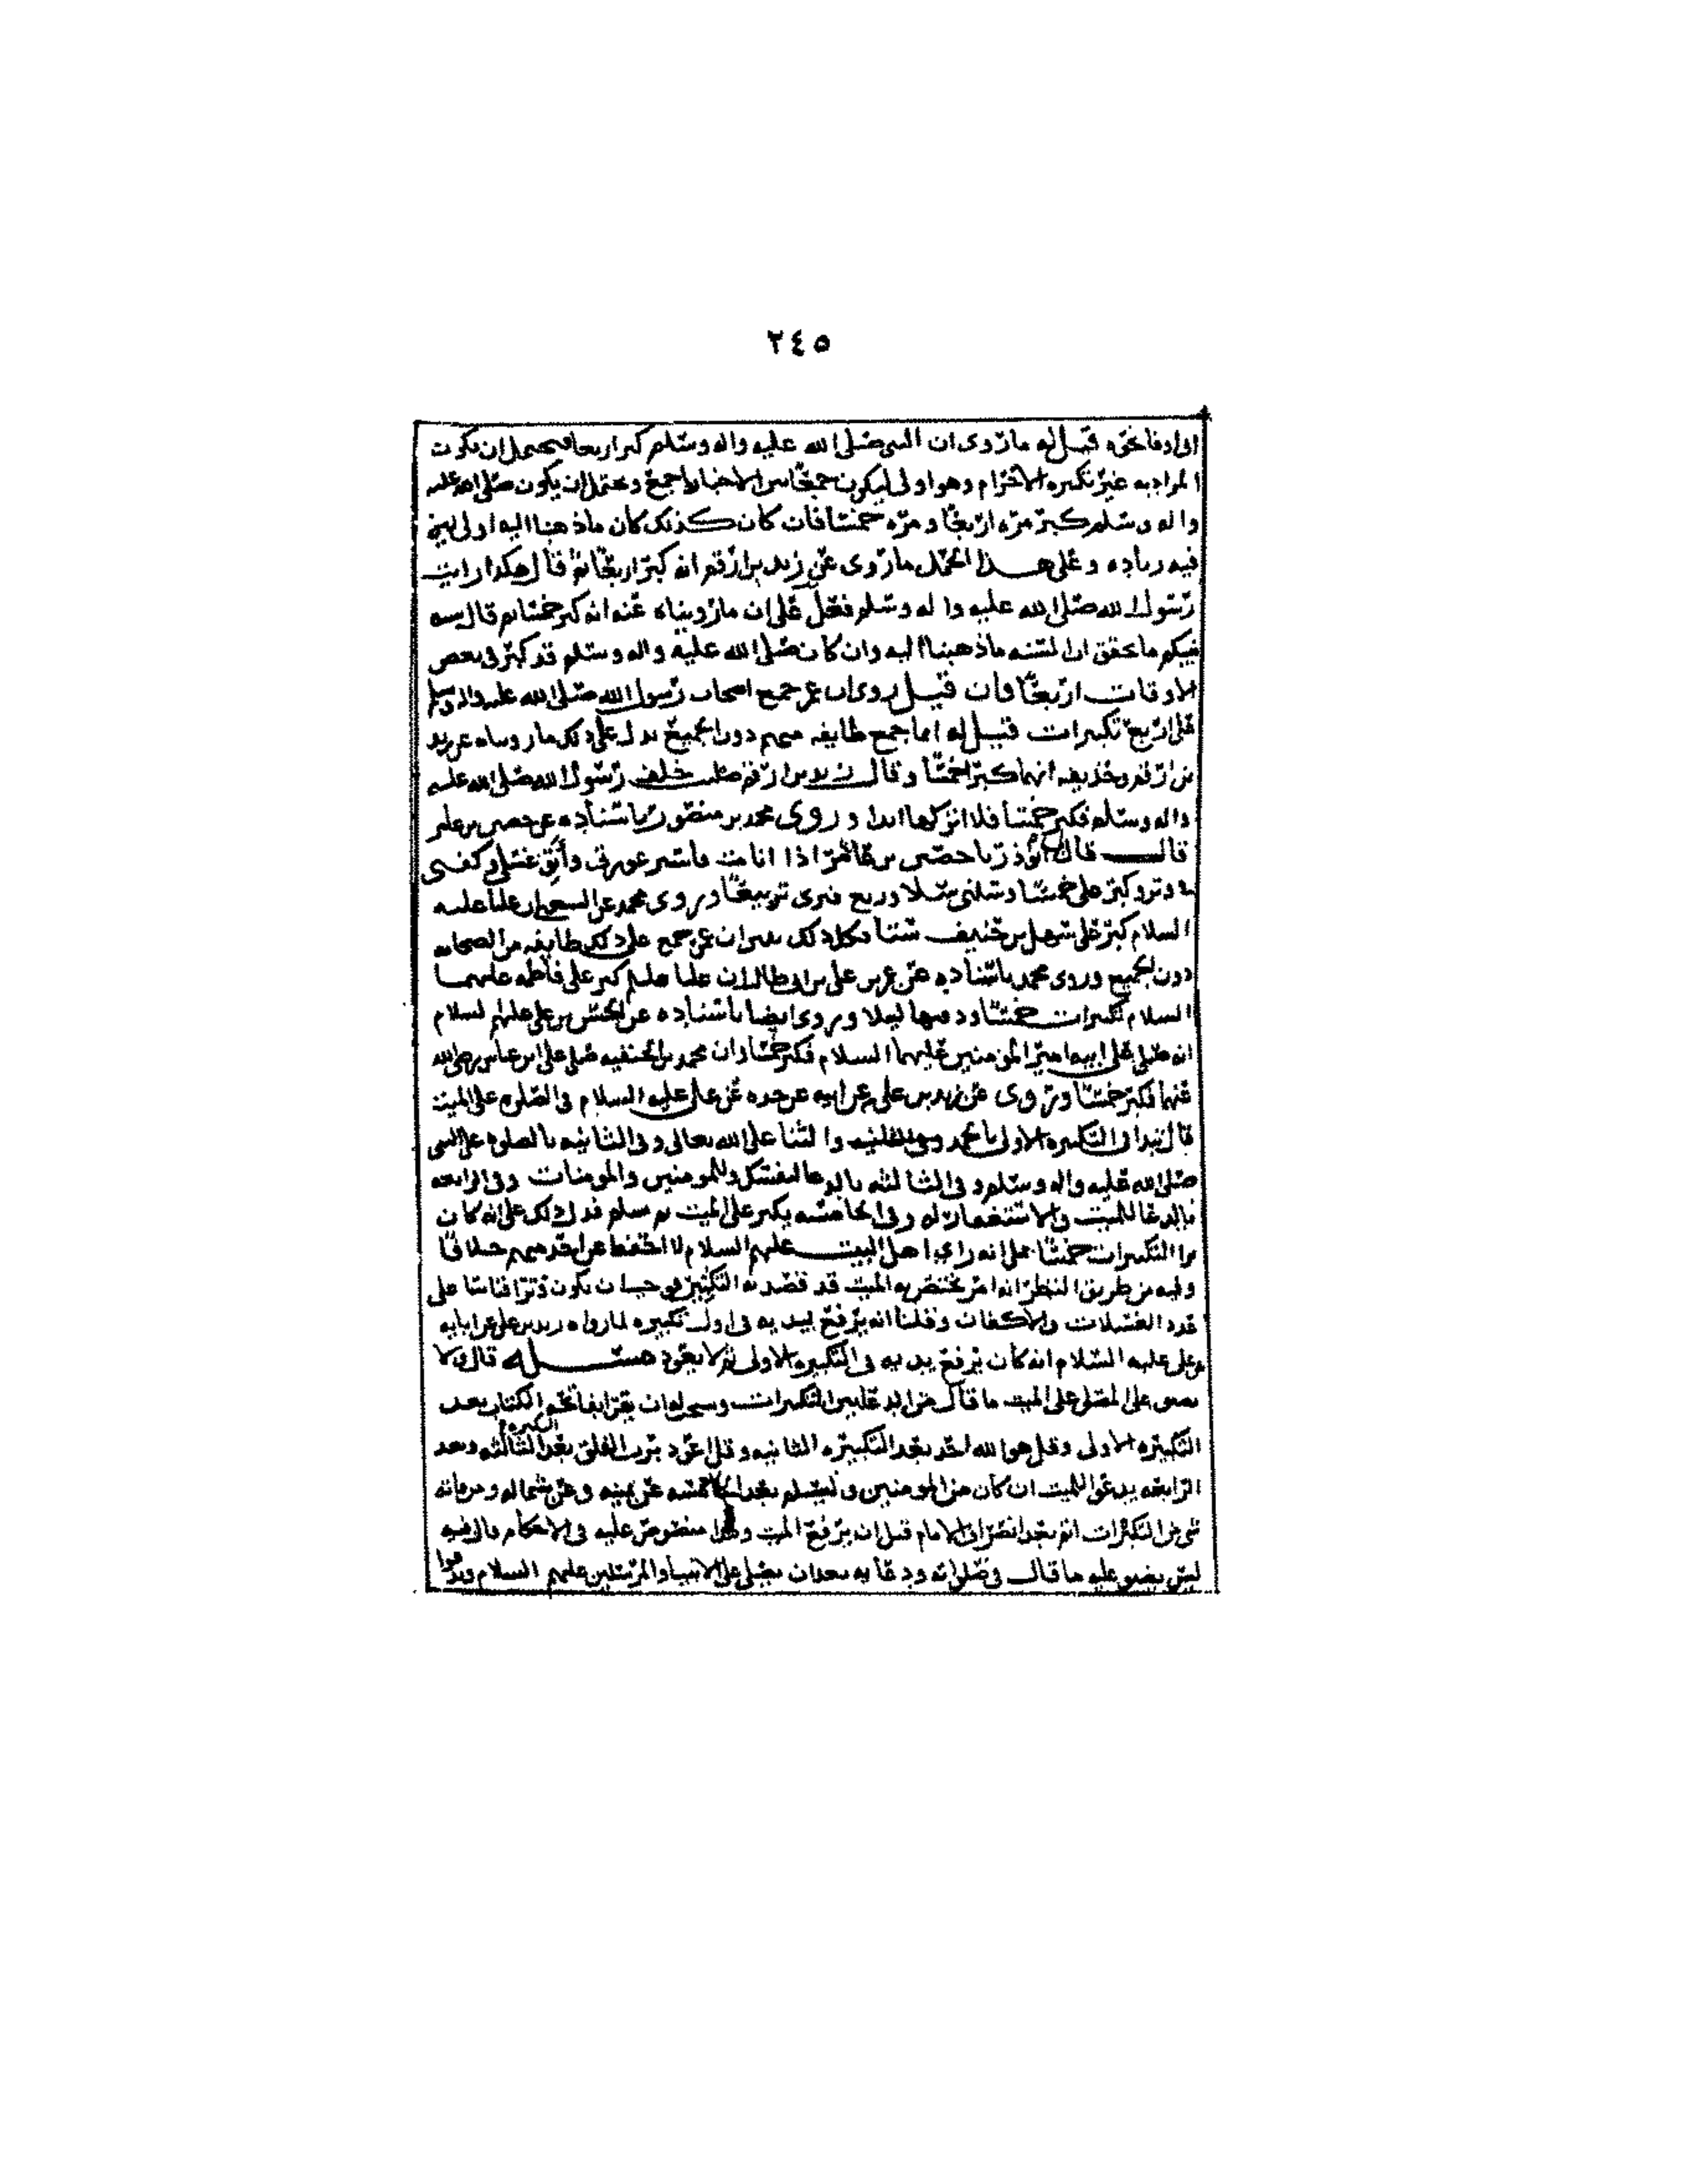 ٢٤٥
قيل له ما روى ان النبى صلى الله عليه واله وسلم كبر اربعا فيحتمل ان تكون
المراد به غير تكبيره الاحرام وهو اولى ليكون جمعا بين الاخبار اجمع ويحتمل ان يكون صلى الله عليه
واله وسلم كبر مره اربعا ومره خمسا فان كان كذلك كان ما ذهبنا اليه اولى
فيه زياده وعلى هذا المحمل ما روى عن زيد بن ارقم انه كبر اربعا ثم قال هكذا رايت
رسول الله صلى الله عليه واله وسلم فعل على ان ما رويناه عنه انه كبر خمسا ثم قال سنه
نبيكم ما يحقق ان السنه ما ذهبنا اليه وان كان صلى الله عليه واله وسلم قد كبر فى بعض
الاوقات اربعا فان قيل روى ان عمر جمع اصحاب رسول الله صلى الله عليه واله وسلم
على اربع تكبيرات قيل له انما جمع طايفه منهم دون الجميع يدل على ذلك ما رويناه عن زيد
بن ارقم وحذيفه انهما كبرا خمسا وقال زيد بن ارقم صليت خلف رسول الله صلى الله عليه
واله وسلم فكبر خمسا فلا اتركها ابدا وروى محمد بن منصور باسناده عن حصين بن عامر
قال قال ابو ذر يا حصين بن عامر اذا انا مت فاستر عورتى وانق غسلى وكفنى
فى وتر وكبر على خمسا وسلنى سلا وربع قبرى تربيعا وروى محمد عن الشعبى ان عليا عليه
السلام كبر على سهل بن حنيف ستا فكل ذلك يبين ان عمر جمع على ذلك طايفه من الصحابه
دون الجميع وروى محمد باسناده عن عمر بن على بن ابى طالب ان عليا عليلم كبر على فاطمه عليهما
السلام تكبيرات خمسا ودفنها ليلا وروى ايضا باسناده عن الحسن بن على عليهم السلام
انه صلى على ابيه امير المومنين عليهما السلام فكبر خمسا وان محمد بن الحنفيه صلى على ابن عباس رضى الله
عنهما فكبر خمسا وروى عن زيد بن على عن ابيه عن جده عن على عليه السلام فى الصلوه على الميت
قال تبدا فى التكبيره الاولى بالحمد والثنا على الله تعالى وفى الثانيه بالصلوه على النبى
صلى الله عليه واله وسلم وفى الثالثه بالدعا لنفسك وللمومنين والمومنات وفى الرابعه
بالدعا للميت والاستغفار له وفى الخامسه يكبر على الميت ثم يسلم فدل ذلك على انه كان
يرا التكبيرات خمسا على انه راى اهل البيت عليهم السلام لا احفظ عن احد منهم خلافا
وفيه من طريق النظر انه امر يختص به الميت قد قصد به التكثير فوجب ان يكون وترا قياسا على
عدد الغسلات والاكفان وقلنا انه يرفع يديه فى اول تكبيره لما رواه زيد بن على عن ابايه
عن على عليه السلام انه كان يرفع يديه فى التكبيره الاولى ثم لا يعود مسئله قال ولا
يضيق على المصلى على الميت ما قال من الدعا بين التكبيرات ويستحب له ان يقرا بفاتحه الكتاب بعد
التكبيره الاولى وقل هو الله احد بعد التكبيره الثانيه وقل اعوذ برب الفلق بعد التكبيره الثالثه وبعد
الرابعه يدعو للميت ان كان من المومنين وليسلم بعد الخامسه عن يمينه وعن شماله ومن فاته
شى من التكبيرات اتم بعد انصراف الامام قبل ان يرفع الميت وهذا منصوص عليه فى الاحكام قال فيه
ليس يضيق عليه ما قال فى صلوته ودعا به بعد ان يصلى على الانبيا والمرسلين عليهم السلام ويدعوا